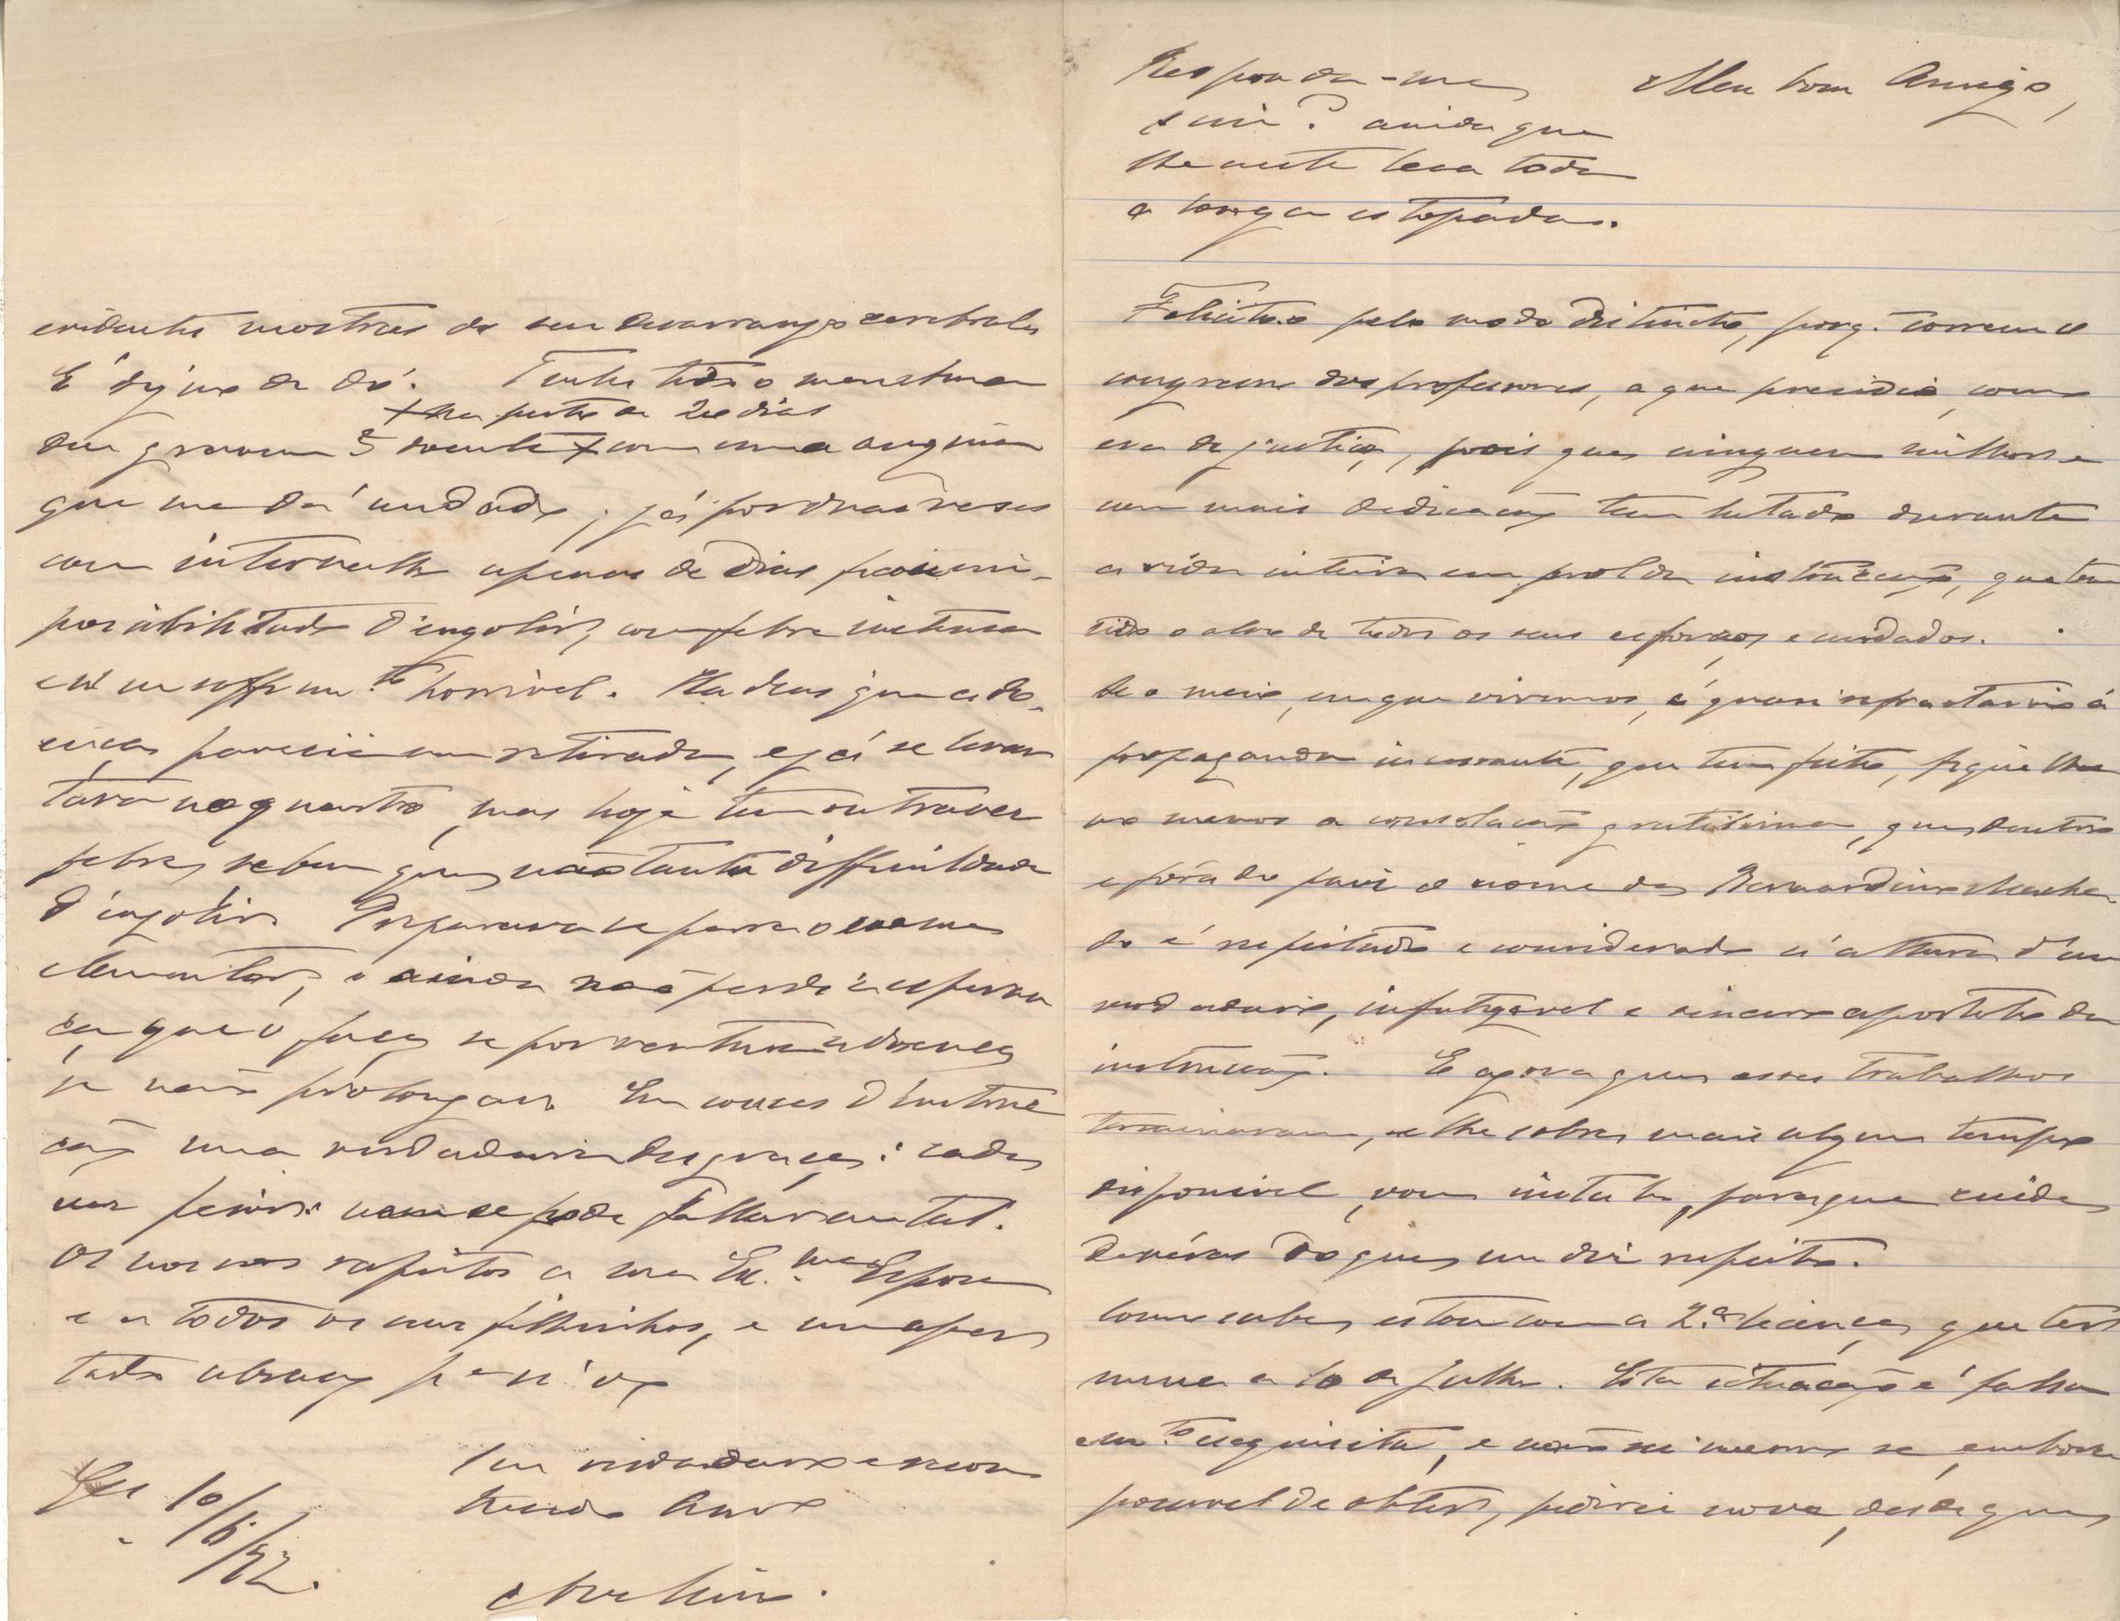 Responda-me
sim? ainda que
lhe custe lêr toda
a longa estopada.
Meu bom Amigo,
Felicito-o pelo modo distincto, porq. correu o
congresso dos professores, a que presidiu, como
era de justiça, pois que ninguem milhor e
com mais dedicação tem luctado durante
a vida inteira em prol da instrucção, que tem
sido o alvo de todos os seus esforços e cuidados.
Se o meio, em que vivemos, é quasi refractario á
propaganda incessante, que tem feito, fique-lhe
ao menos a consolação gratissima, que dentro
e fóra do paiz o nome de Bernardino Macha-
do é respeitado e considerado á altura d'um
verdadeiro, infatigavel e sincero apostolo da
instrucção. E agora que esses trabalhos
terminaram, e lhe sobra mais algum tempo
disponivel, vou instal-o, para que cuide
devéras do que me diz respeito.
Como sabe, estou com a 2.ª licença, que ter
mina a 10 de Julho. Esta situação é falsa
e m.to exquisita, e não sei mesmo se, embora
possivel de obter, pedirei nova, desde que
evidentes mostras do seu desarranjo cerebral.
É digno de dó. Tenho tido o menstruo
deu gravem doente com uma angina
+ ha perto de 20 dias
que me dá cuidado; já por duas vezes
com intervallo apenas de dias foi im-
possibilitado d'engolir, com febre intensa
e n'um soffrim.to horrivel. Ha dias que a do-
ença parecia em retirada, e já se levan
tára no quarto, mas hoje tem outra vez
febre, se bem que não tanta difficuldade
d'engolir. Preparava-se para o exame
elementar, e ainda não perdi a esperan
ça que o faça se porventura a doença
se não prolongar. Em cousas d'instruc
ção uma verdadeira desgraça: cada
vez peior: nem se pode fallar em tal.
Os nossos respeitos a sua Ex.ma Esposa
e a todos os seus filhinhos, e um aper
tado abraço p.a si do
Seu verdadeiro e reco
nhecido Am.o
10/6/92.
Avelino.